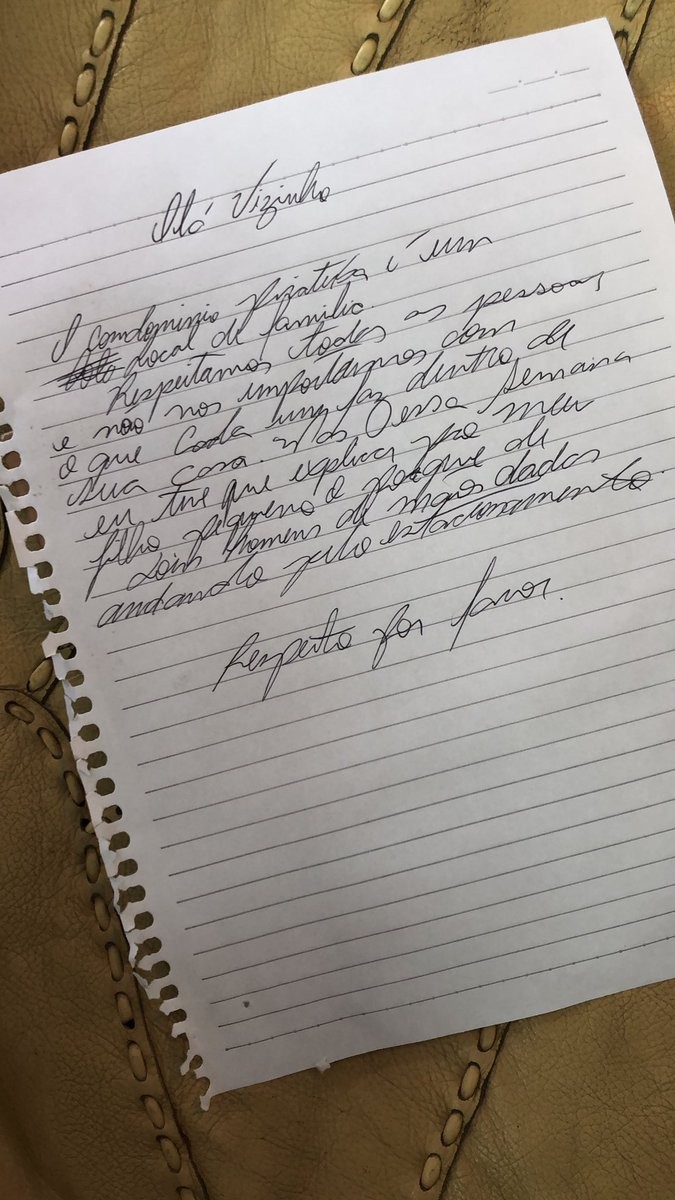 Olá Vizinho
O condominio Piratiba é um
local de familia
Respeitamos todas as pessoas
e não nos importamos com
o que cada um faz dentro de
sua casa. Mas essa semana
eu tive que explicar pro meu
filho pequeno o porque de
dois homens de mãos dadas
andando pelo estacionamento.
Respeito por favor.